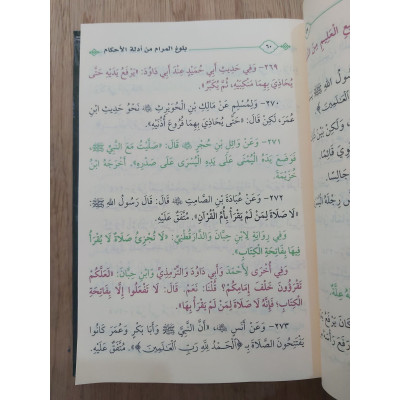 ٦٠
بلوغ المرام من أدلة الأحكام
٢٦٩- وَفِي حَدِيثِ أَبِي حُمَيْدٍ عِنْدَ أَبِي دَاوُدَ: «يَرْفَعُ يَدَيْهِ حَتَّى
يُحَاذِيَ بِهِمَا مَنْكِبَيْهِ، ثُمَّ يُكَبِّرُ».
٢٧٠- وَلِمُسْلِمٍ عَنْ مَالِكِ بْنِ الْحُوَيْرِثِ ﷺ نَحْوُ حَدِيثِ ابْنِ
عُمَرَ، لَكِنْ قَالَ: «حَتَّى يُحَاذِيَ بِهِمَا فُرُوعَ أُذُنَيْهِ».
٢٧١- وَعَنْ وَائِلِ بْنِ حُجْرٍ قَالَ: «صَلَّيْتُ مَعَ النَّبِيِّ ﷺ،
فَوَضَعَ يَدَهُ الْيُمْنَى عَلَى يَدِهِ الْيُسْرَى عَلَى صَدْرِهِ». أَخْرَجَهُ ابْنُ
خُزَيْمَةَ.
٢٧٢- وَعَنْ عُبَادَةَ بْنِ الصَّامِتِ قَالَ: قَالَ رَسُولُ اللهِ ﷺ:
«لَا صَلَاةَ لِمَنْ لَمْ يَقْرَأْ بِأُمِّ الْقُرْآنِ». مُتَّفَقٌ عَلَيْهِ.
وَفِي رِوَايَةٍ لِابْنِ حِبَّانَ وَالدَّارَقُطْنِيِّ: «لَا تُجْزِئُ صَلَاةٌ لَا يُقْرَأُ
فِيهَا بِفَاتِحَةِ الْكِتَابِ».
وَفِي أُخْرَى لِأَحْمَدَ وَأَبِي دَاوُدَ وَالتِّرْمِذِيِّ وَابْنِ حِبَّانَ: «لَعَلَّكُمْ
تَقْرَؤُونَ خَلْفَ إِمَامِكُمْ؟ قُلْنَا: نَعَمْ. قَالَ: لَا تَفْعَلُوا إِلَّا بِفَاتِحَةِ
الْكِتَابِ؛ فَإِنَّهُ لَا صَلَاةَ لِمَنْ لَمْ يَقْرَأْ بِهَا».
٢٧٣- وَعَنْ أَنَسٍ ، «أَنَّ النَّبِيَّ ﷺ وَأَبَا بَكْرٍ وَعُمَرَ كَانُوا
يَفْتَتِحُونَ الصَّلَاةَ بِـ ﴿الْحَمْدُ لِلَّهِ رَبِّ الْعَلَمِينَ﴾». مُتَّفَقٌ عَلَيْهِ.